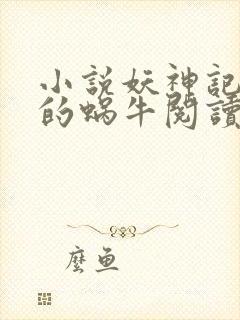 小說妖神記
的蝸牛閱讀
麼魚